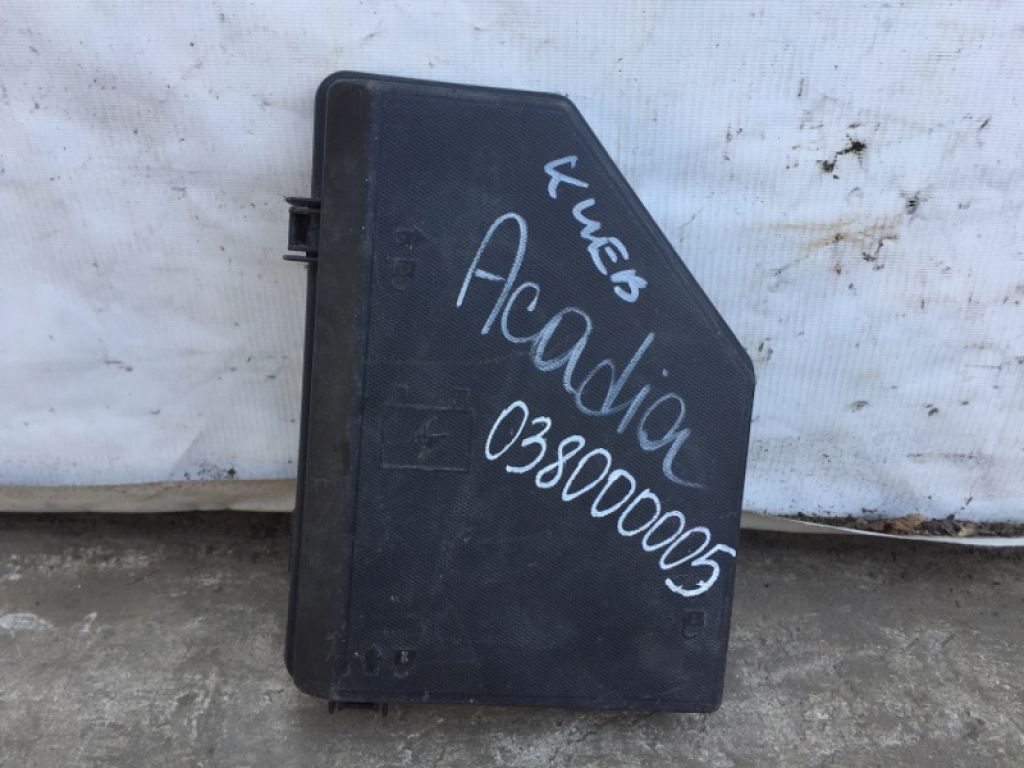 КИЕВ
Acadia
0380000005